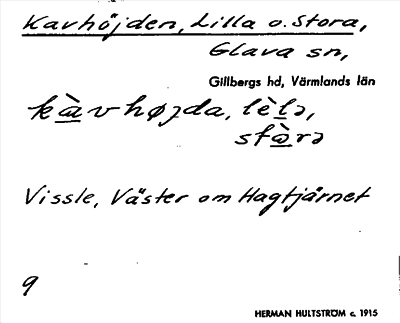 Kavhöjden, Lilla o. Stora,
Glava sn,
Gillbergs hd, Värmlands län
kàvhøjda, lèlə,
stàrə
Vissle, Väster om Hagtjärnet
9
HERMAN HULTSTRÖM c. 1915